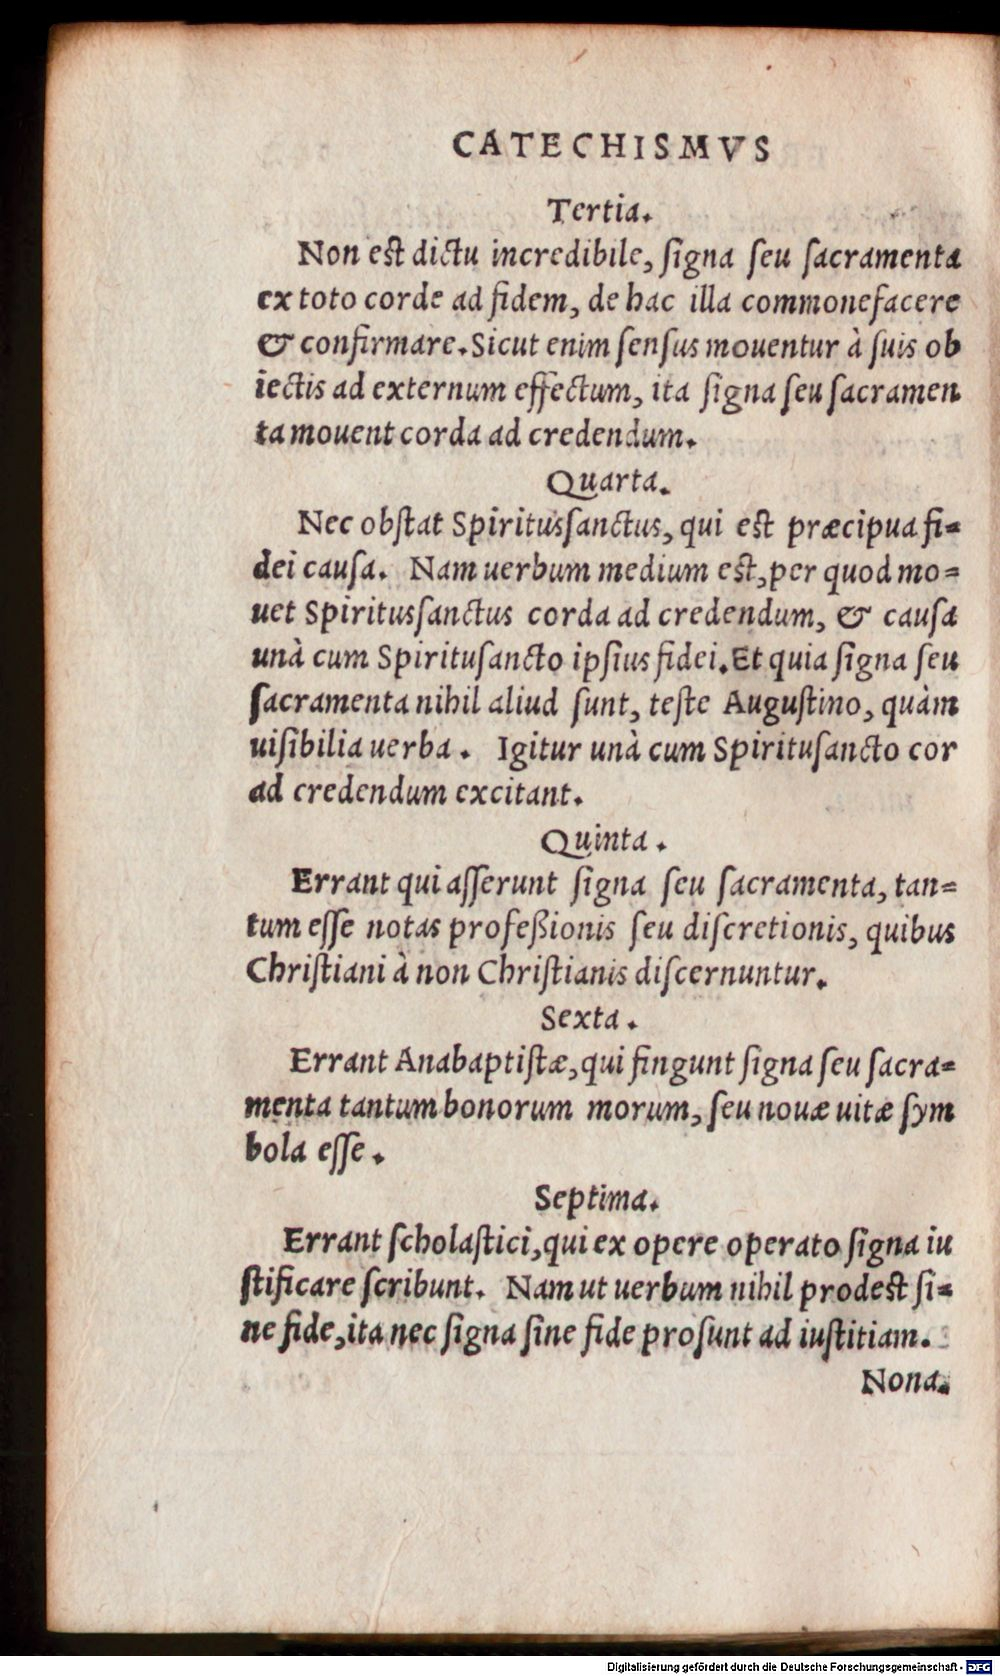 CATECHISMVS
Tertia.
Non est dictu incredibile, ſigna ſeu ſacramenta
ex toto corde ad fidem, de hac illa commonefacere
& confirmare. Sicut enim ſenſus mouentur à ſuis ob
iectis ad externum effectum, ita ſigna ſeu ſacramen
ta mouent corda ad credendum.
Quarta.
Nec obſtat Spiritusſanctus, qui est præcipua fi=
dei cauſa. Nam uerbum medium est, per quod mo=
uet Spiritusſanctus corda ad credendum, & cauſa
unà cum Spirituſancto ipſius fidei. Et quia ſigna ſeu
ſacramenta nihil aliud ſunt, teſte Auguſtino, quàm
uiſibilia uerba. Igitur unà cum Spirituſancto cor
ad credendum excitant.
Quinta.
Errant qui aſſerunt ſigna ſeu ſacramenta, tan=
tum eſſe notas profeßionis ſeu diſcretionis, quibus
Chriſtiani à non Chriſtianis diſcernuntur.
Sexta.
Errant Anabaptiſtæ, qui fingunt ſigna ſeu ſacra=
menta tantum bonorum morum, ſeu nouæ uitæ ſym
bola eſſe.
Septima.
Errant ſcholaſtici, qui ex opere operato ſigna iu
ſtificare ſcribunt. Nam ut uerbum nihil prodest ſi=
ne fide, ita nec ſigna ſine fide proſunt ad iuſtitiam.
Nona.
Digitalisierung gefördert durch die Deutsche Forschungsgemeinschaft - DFG